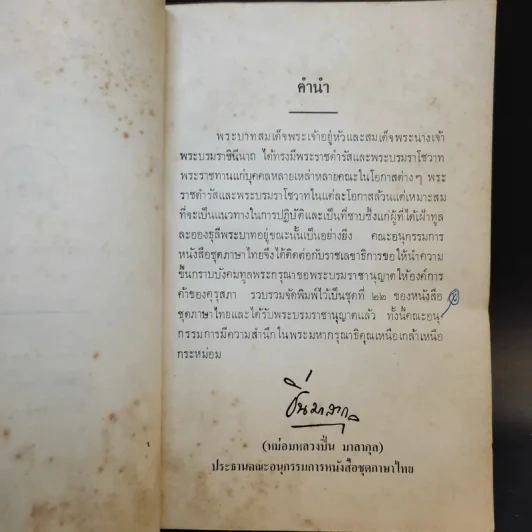 คำนำ
พระบาทสมเด็จพระเจ้าอยู่หัวและสมเด็จพระนางเจ้า
พระบรมราชินีนาถ ได้ทรงมีพระราชดำรัสและพระบรมราโชวาท
พระราชทานแก่บุคคลหลายเหล่าหลายคณะในโอกาสต่างๆ พระ
ราชดำรัสและพระบรมราโชวาทในแต่ละโอกาสล้วนแต่เหมาะสม
ที่จะเป็นแนวทางในการปฏิบัติและเป็นที่ซาบซึ้งแก่ผู้ที่ได้เฝ้าทูล
ละอองธุลีพระบาทอยู่ขณะนั้นเป็นอย่างยิ่ง คณะอนุกรรมการ
หนังสือชุดภาษาไทยจึงได้ติดต่อกับราชเลขาธิการขอให้นำความ
ขึ้นกราบบังคมทูลพระกรุณาขอพระบรมราชานุญาตให้องค์การ
ค้าของคุรุสภา รวบรวมจัดพิมพ์ไว้เป็นชุดที่ ๒๒ ของหนังสือ
ชุดภาษาไทยและได้รับพระบรมราชานุญาตแล้ว ทั้งนี้คณะอนุ
กรรมการมีความสำนึกในพระมหากรุณาธิคุณเหนือเกล้าเหนือ
กระหม่อม
ปิ่น มาลากุล
(หม่อมหลวงปิ่น มาลากุล)
ประธานคณะอนุกรรมการหนังสือชุดภาษาไทย